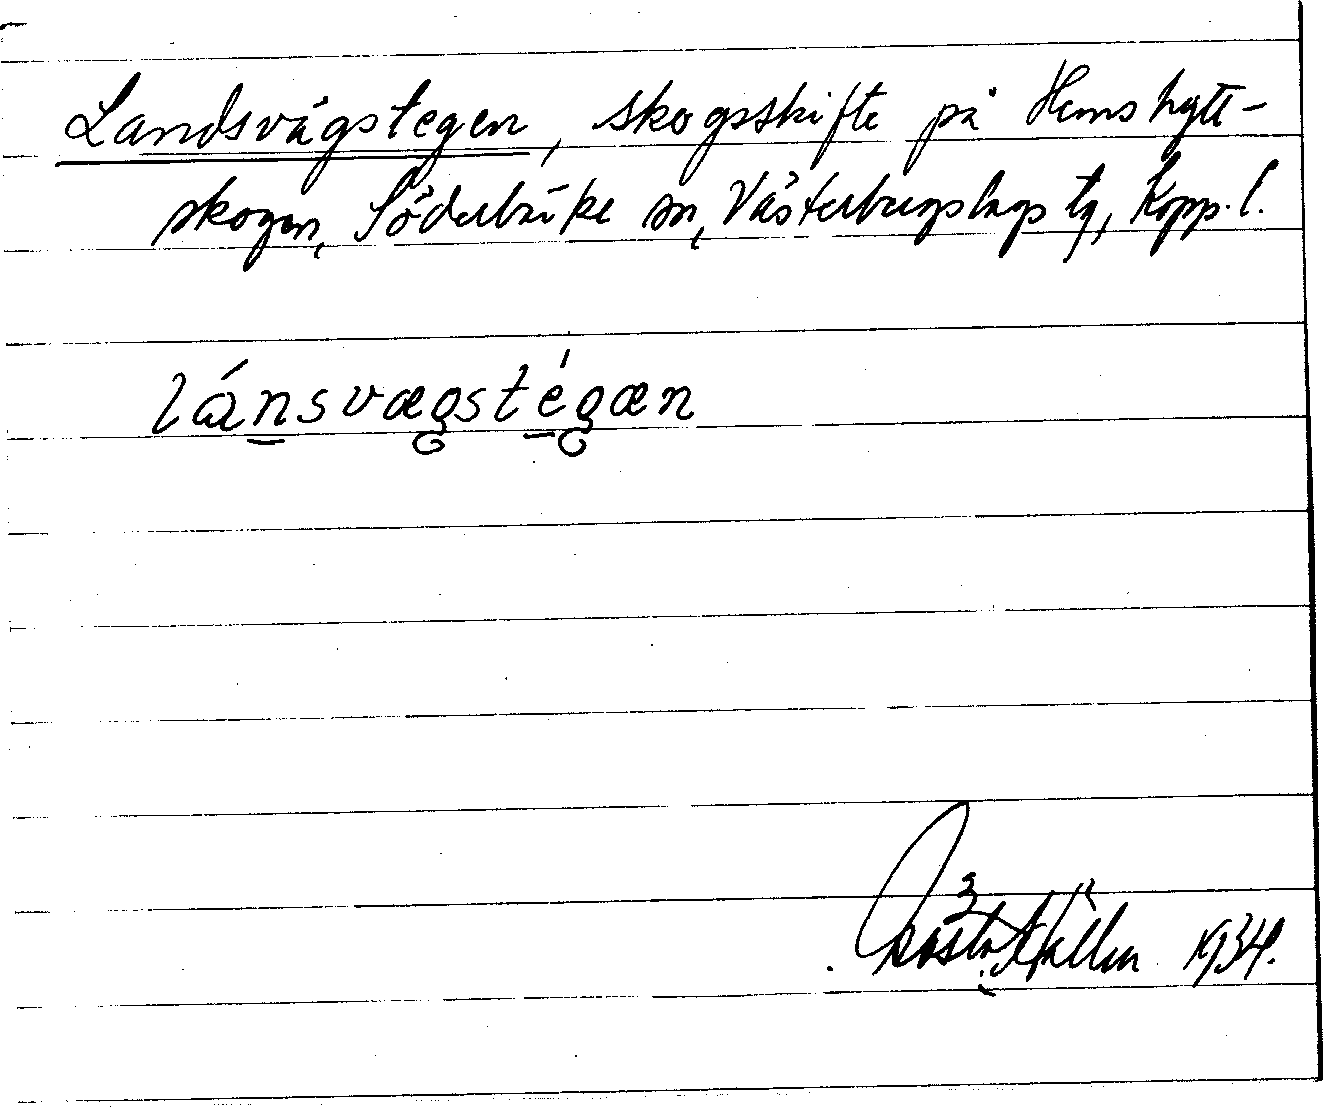 Landsvägstegen, skogsskifte på Hemshytt-
skogen, Söderbärke sn, Västerbergslags tg, Kopp. l.
lánsvægstégæn
Gösta Källen 1934.